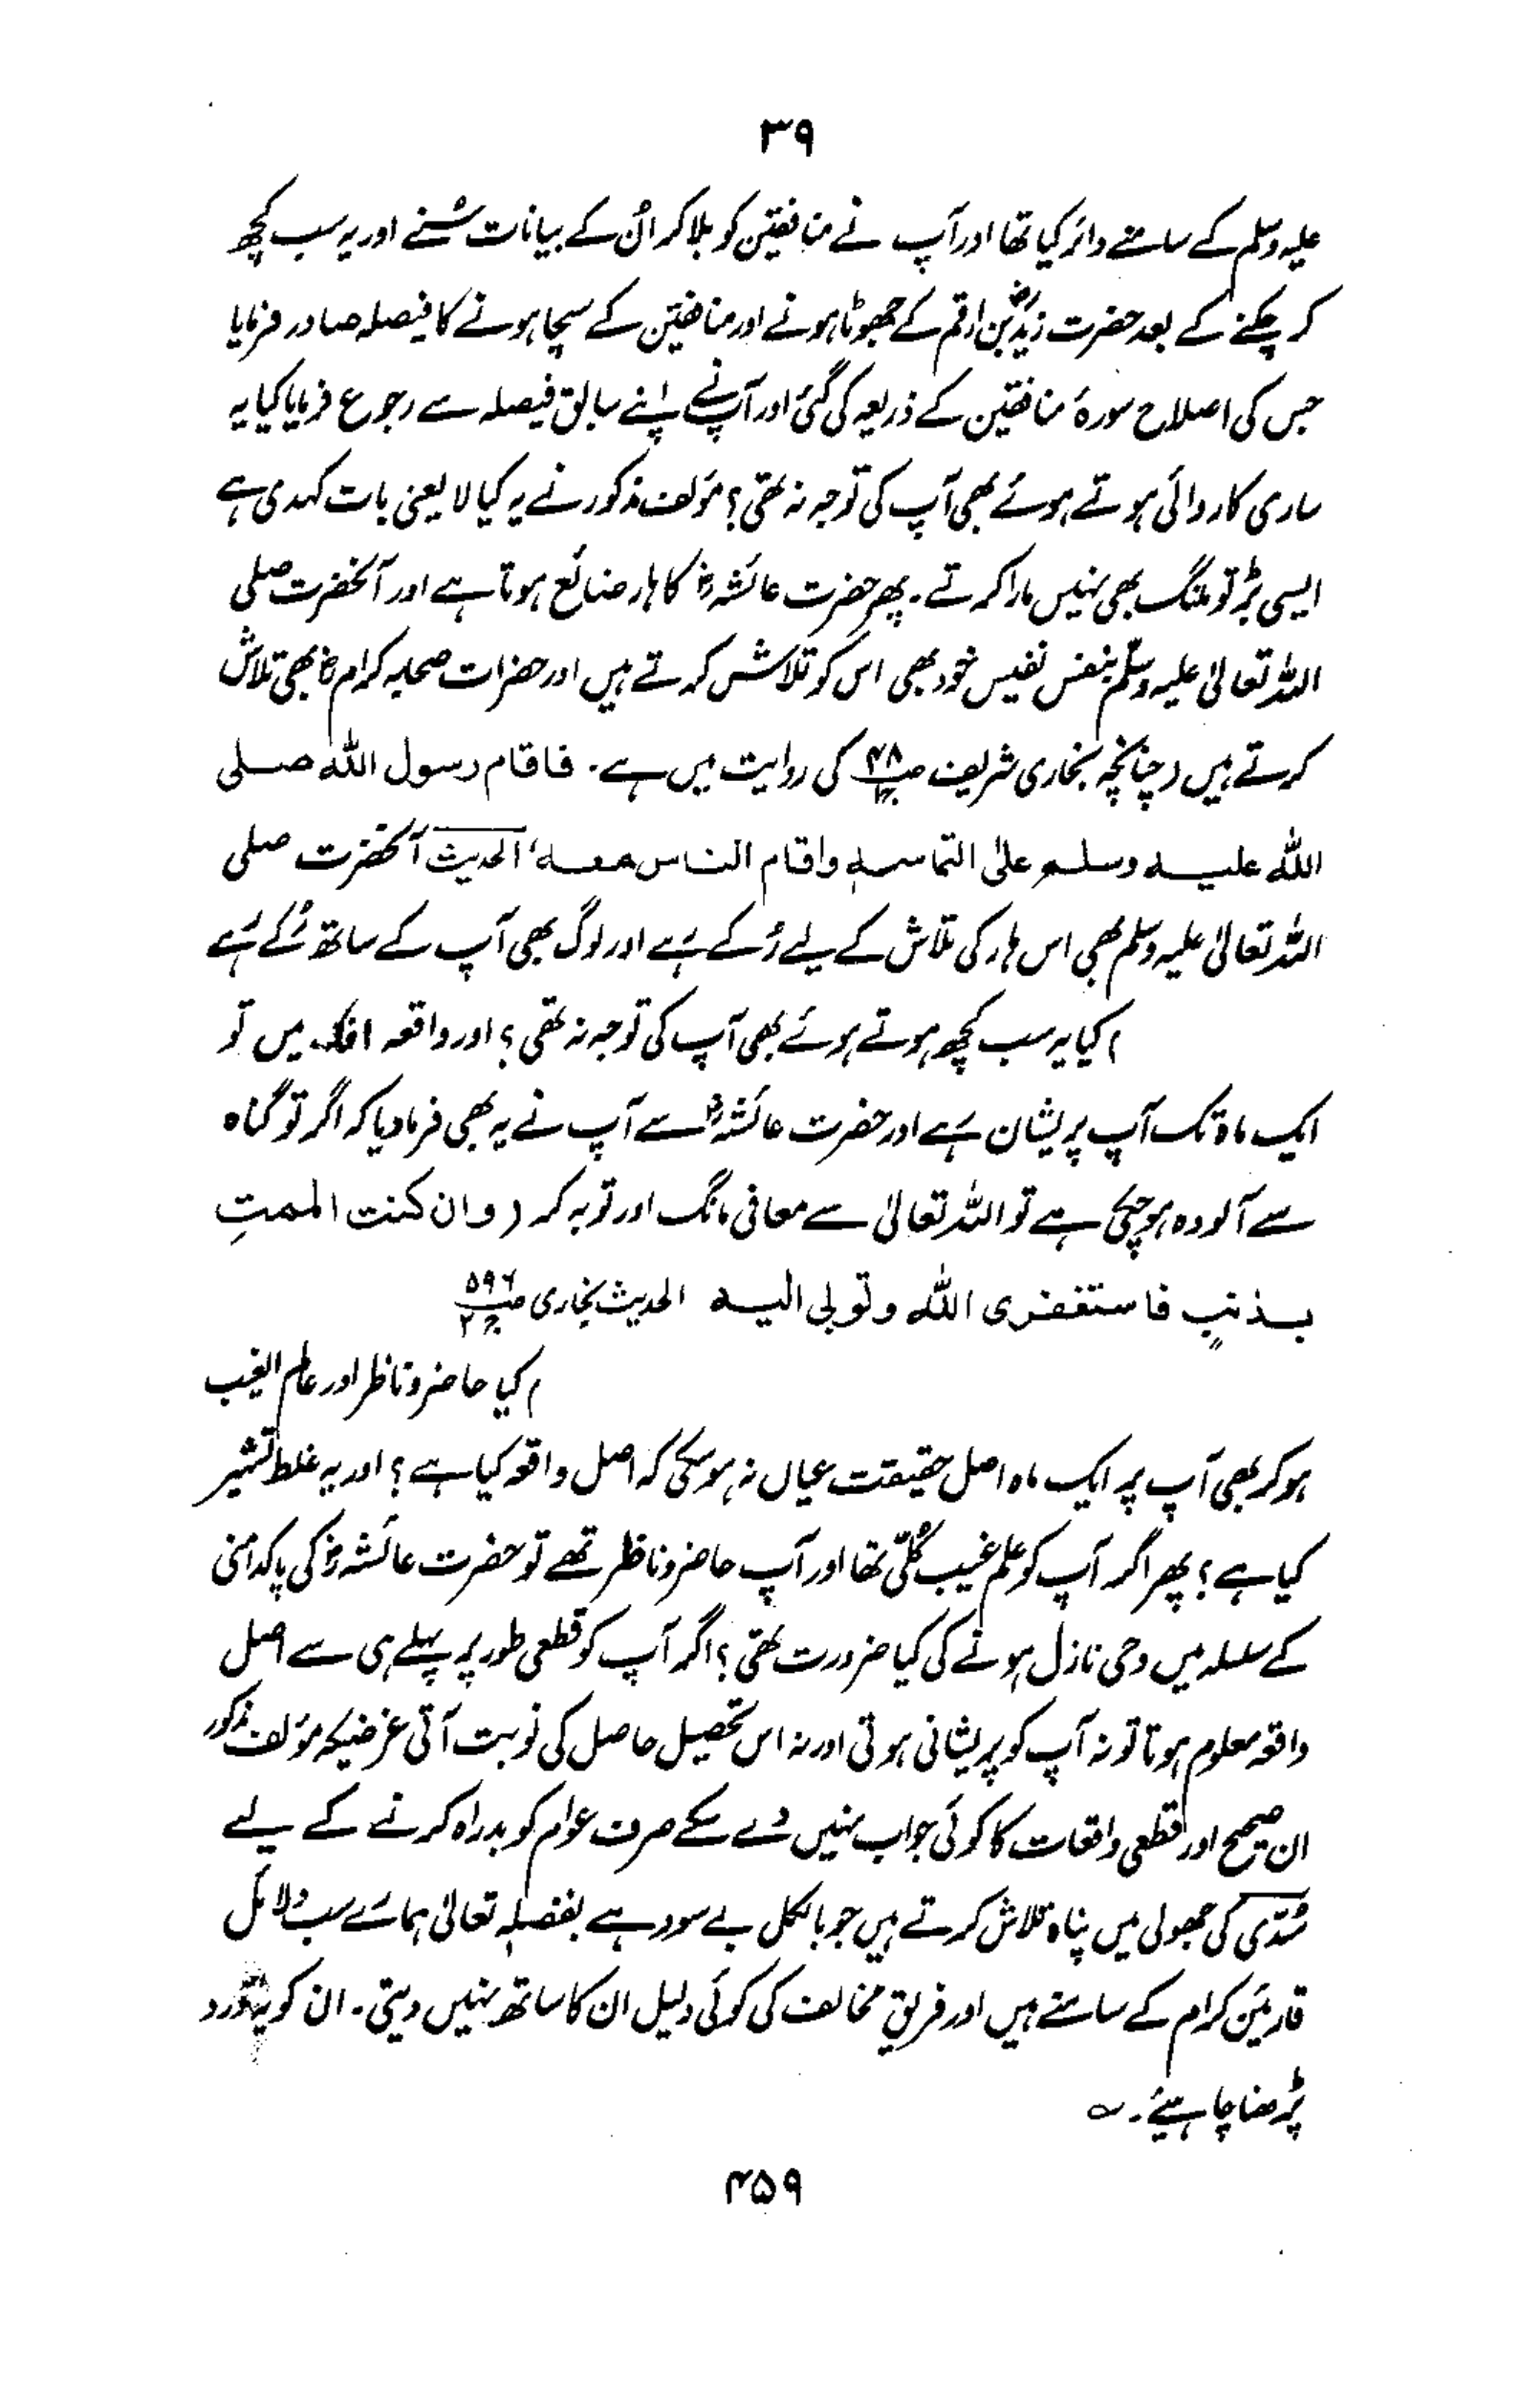 ۳۹
علیہ وسلم کے سامنے دائر کیا تھا اور آپ نے منافقین کو بلا کر اُن کے بیانات سُنے اور یہ سب کچھ
کر چکنے کے بعد حضرت زیدؓ بن ارقم کے جھوٹا ہونے اور منافقین کے سچا ہونے کا فیصلہ صادر فرمایا
جس کی اصلاح سورۂ منافقین کے ذریعہ کی گئی اور آپ نے اپنے سابق فیصلہ سے رجوع فرمایا کیا یہ
ساری کاروائی ہوتے ہوئے بھی آپ کی توجہ نہ تھی؟ مؤلف مذکور نے یہ کیا لایعنی بات کہدی ہے
ایسی بڑ تو ملنگ بھی نہیں مارا کرتے۔ پھر حضرت عائشہؓ کا ہار ضائع ہوتا ہے اور آنحضرت صلی
اللہ تعالیٰ علیہ وسلّم بنفس نفیس خود بھی اس کو تلاش کرتے ہیں اور حضرات صحابہ کرامؓ بھی تلاش
کرتے ہیں (چنانچہ بخاری شریف ص۴۸ ج۱ کی روایت میں ہے۔ فاقام رسول اللہ صلی
اللہ علیہ وسلم علیٰ التماسہٖ واقام الناس معہ، الحدیث آنحضرت صلی
اللہ تعالیٰ علیہ وسلم بھی اس ہار کی تلاش کے لیے رُکے رہے اور لوگ بھی آپ کے ساتھ رُکے رہے
) کیا یہ سب کچھ ہوتے ہوئے بھی آپ کی توجہ نہ تھی؟ اور واقعہ افک میں تو
ایک ماہ تک آپ پریشان رہے اور حضرت عائشہؓ سے آپ نے یہ بھی فرما دیا کہ اگر تو گناہ
سے آلودہ ہو چکی ہے تو اللہ تعالیٰ سے معافی مانگ اور توبہ کر (وان کنت الممتِ
بذنبٍ فاستغفری اللہ وتوبی الیہ الحدیث بخاری ص۵۹۶ ج۲
) کیا حاضر و ناظر اور عالم الغیب
ہو کر بھی آپ پر ایک ماہ اصل حقیقت عیاں نہ ہو سکی کہ اصل واقعہ کیا ہے؟ اور یہ غلط تشہیر
کیا ہے؟ پھر اگر آپ کو علم غیب کُلّی تھا اور آپ حاضر و ناظر تھے تو حضرت عائشہؓ کی پاکدامنی
کے سلسلہ میں وحی نازل ہونے کی کیا ضرورت تھی؟ اگر آپ کو قطعی طور پر پہلے ہی سے اصل
واقعہ معلوم ہوتا تو نہ آپ کو پریشانی ہوتی اور نہ اس تحصیل حاصل کی نوبت آتی غرضیکہ مؤلف مذکور
ان صحیح اور قطعی واقعات کا کوئی جواب نہیں دے سکے صرف عوام کو بدراہ کرنے کے لیے
سُدّی کی جھولی میں پناہ تلاش کرتے ہیں جو بالکل بے سود ہے بفضلہٖ تعالیٰ ہمارے سب دلائل
قارئین کرام کے سامنے ہیں اور فریق مخالف کی کوئی دلیل ان کا ساتھ نہیں دیتی۔ ان کو یہ ورد
پڑھنا چاہیئے۔ ؎
۴۵۹